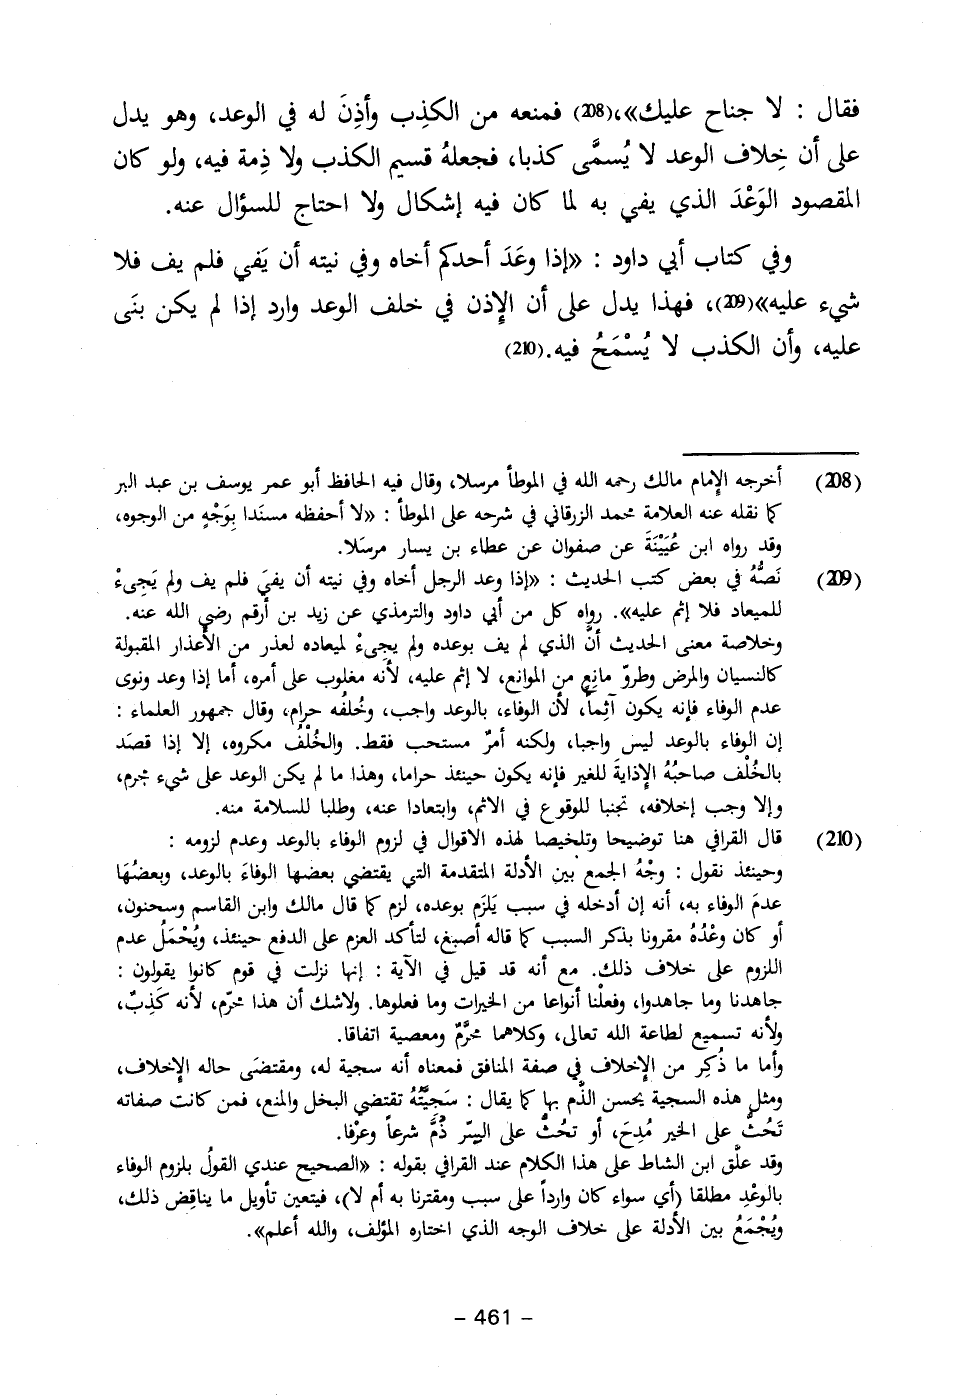 فقال : لا جناح عليك»،(208) فمنعه من الكذِب وأذِنَ له في الوعد، وهو يدل
على أن خِلاف الوعد لا يُسمَّى كذبا، فجعلهُ قسيم الكذب ولا ذِمة فيه، ولو كان
المقصود الوَعْدَ الذي يفي به لما كان فيه إشكال ولا احتاج للسؤال عنه.
وفي كتاب أبي داود : «إذا وعَدَ أحدكم أخاه وفي نيته أن يَفي فلم يف فلا
شيء عليه»(209)، فهذا يدل على أن الإذن في خلف الوعد وارد إذا لم يكن بنَى
عليه، وأن الكذب لا يُسْمَحُ فيه.(210)
(208) أخرجه الإمام مالك رحمه الله في الموطأ مرسلا، وقال فيه الحافظ أبو عمر يوسف بن عبد البر
كما نقله عنه العلامة محمد الزرقاني في شرحه على الموطأ : «لا أحفظه مسنَدا بِوَجْهٍ من الوجوه،
وقد رواه ابن عُيَيْنَةَ عن صفوان عن عطاء بن يسار مرسَلا.
(209) نَصُّهُ في بعض كتب الحديث : «إذا وعد الرجل أخاه وفي نيته أن يفيَ فلم يف ولم يَجِيءْ
للميعاد فلا إثم عليه». رواه كل من أبي داود والترمذي عن زيد بن أرقم رضي الله عنه.
وخلاصة معنى الحديث أنَّ الذي لم يف بوعده ولم يجيءْ لميعاده لعذر من الأعذار المقبولة
كالنسيان والمرض وطروّ مانِع من الموانع، لا إثم عليه، لأنه مغلوب على أمره، أما إذا وعد ونوى
عدم الوفاء فإنه يكون آثِماً، لأن الوفاء، بالوعد واجب، وخُلفُه حرام، وقال جمهور العلماء :
إن الوفاء بالوعد ليس واجبا، ولكنه أمرٌ مستحب فقط. والخُلْفُ مكروه، إلا إذا قصَد
بالخُلْف صاحبُهُ الإذايةَ للغير فإنه يكون حينئذ حراما، وهذا ما لم يكن الوعد على شيء محرم،
وإلا وجب إخلافه، تجنبا للوقوع في الاثم، وابتعادا عنه، وطلبا للسلامة منه.
(210) قال القرافي هنا توضيحا وتلخيصا لهذه الاقوال في لزوم الوفاء بالوعد وعدم لزومه :
وحينئذ نقول : وجْهُ الجمع بين الأدلة المتقدمة التي يقتضي بعضها الوفاءَ بالوعد، وبعضُهَا
عدمَ الوفاء به، أنه إن أدخله في سبب يَلزَم بوعده، لزم كما قال مالك وابن القاسم وسحنون،
أو كان وعْدُهُ مقرونا بذكر السبب كما قاله أصبغ، لتأكد العزم على الدفع حينئذ، ويُحْمَلُ عدم
اللزوم على خلاف ذلك. مع أنه قد قيل في الآية : إنها نزلت في قوم كانوا يقولون :
جاهدنا وما جاهدوا، وفعلْنا أنواعا من الخيرات وما فعلوها. ولاشك أن هذا محرّم، لأنه كَذِبٌ،
ولأنه تسميع لطاعة الله تعالى، وكلاهما محرَّمٌ ومعصية اتفاقا.
وأما ما ذُكِر من الإخلاف في صفة المنافق فمعناه أنه سجية له، ومقتضَى حاله الإخلاف،
ومثل هذه السجية يحسن الذَّم بها كما يقال : سَجِيَّتُهُ تقتضي البخل والمنع، فمن كانت صفاته
تَحُثُّ على الخير مُدِحَ، أو تحُثُّ على اليسّر ذُمَّ شرعاً وعرْفا.
وقد علَّق ابن الشاط على هذا الكلام عند القرافي بقوله : «الصحيح عندي القولُ بلزوم الوفاء
بالوعْدِ مطلقا (أي سواء كان وارداً على سبب ومقترنا به أم لا)، فيتعين تأويل ما يناقِض ذلك،
ويُجْمَعُ بين الأدلة على خلاف الوجه الذي اختاره المؤلف، والله أعلم».
- 461 -